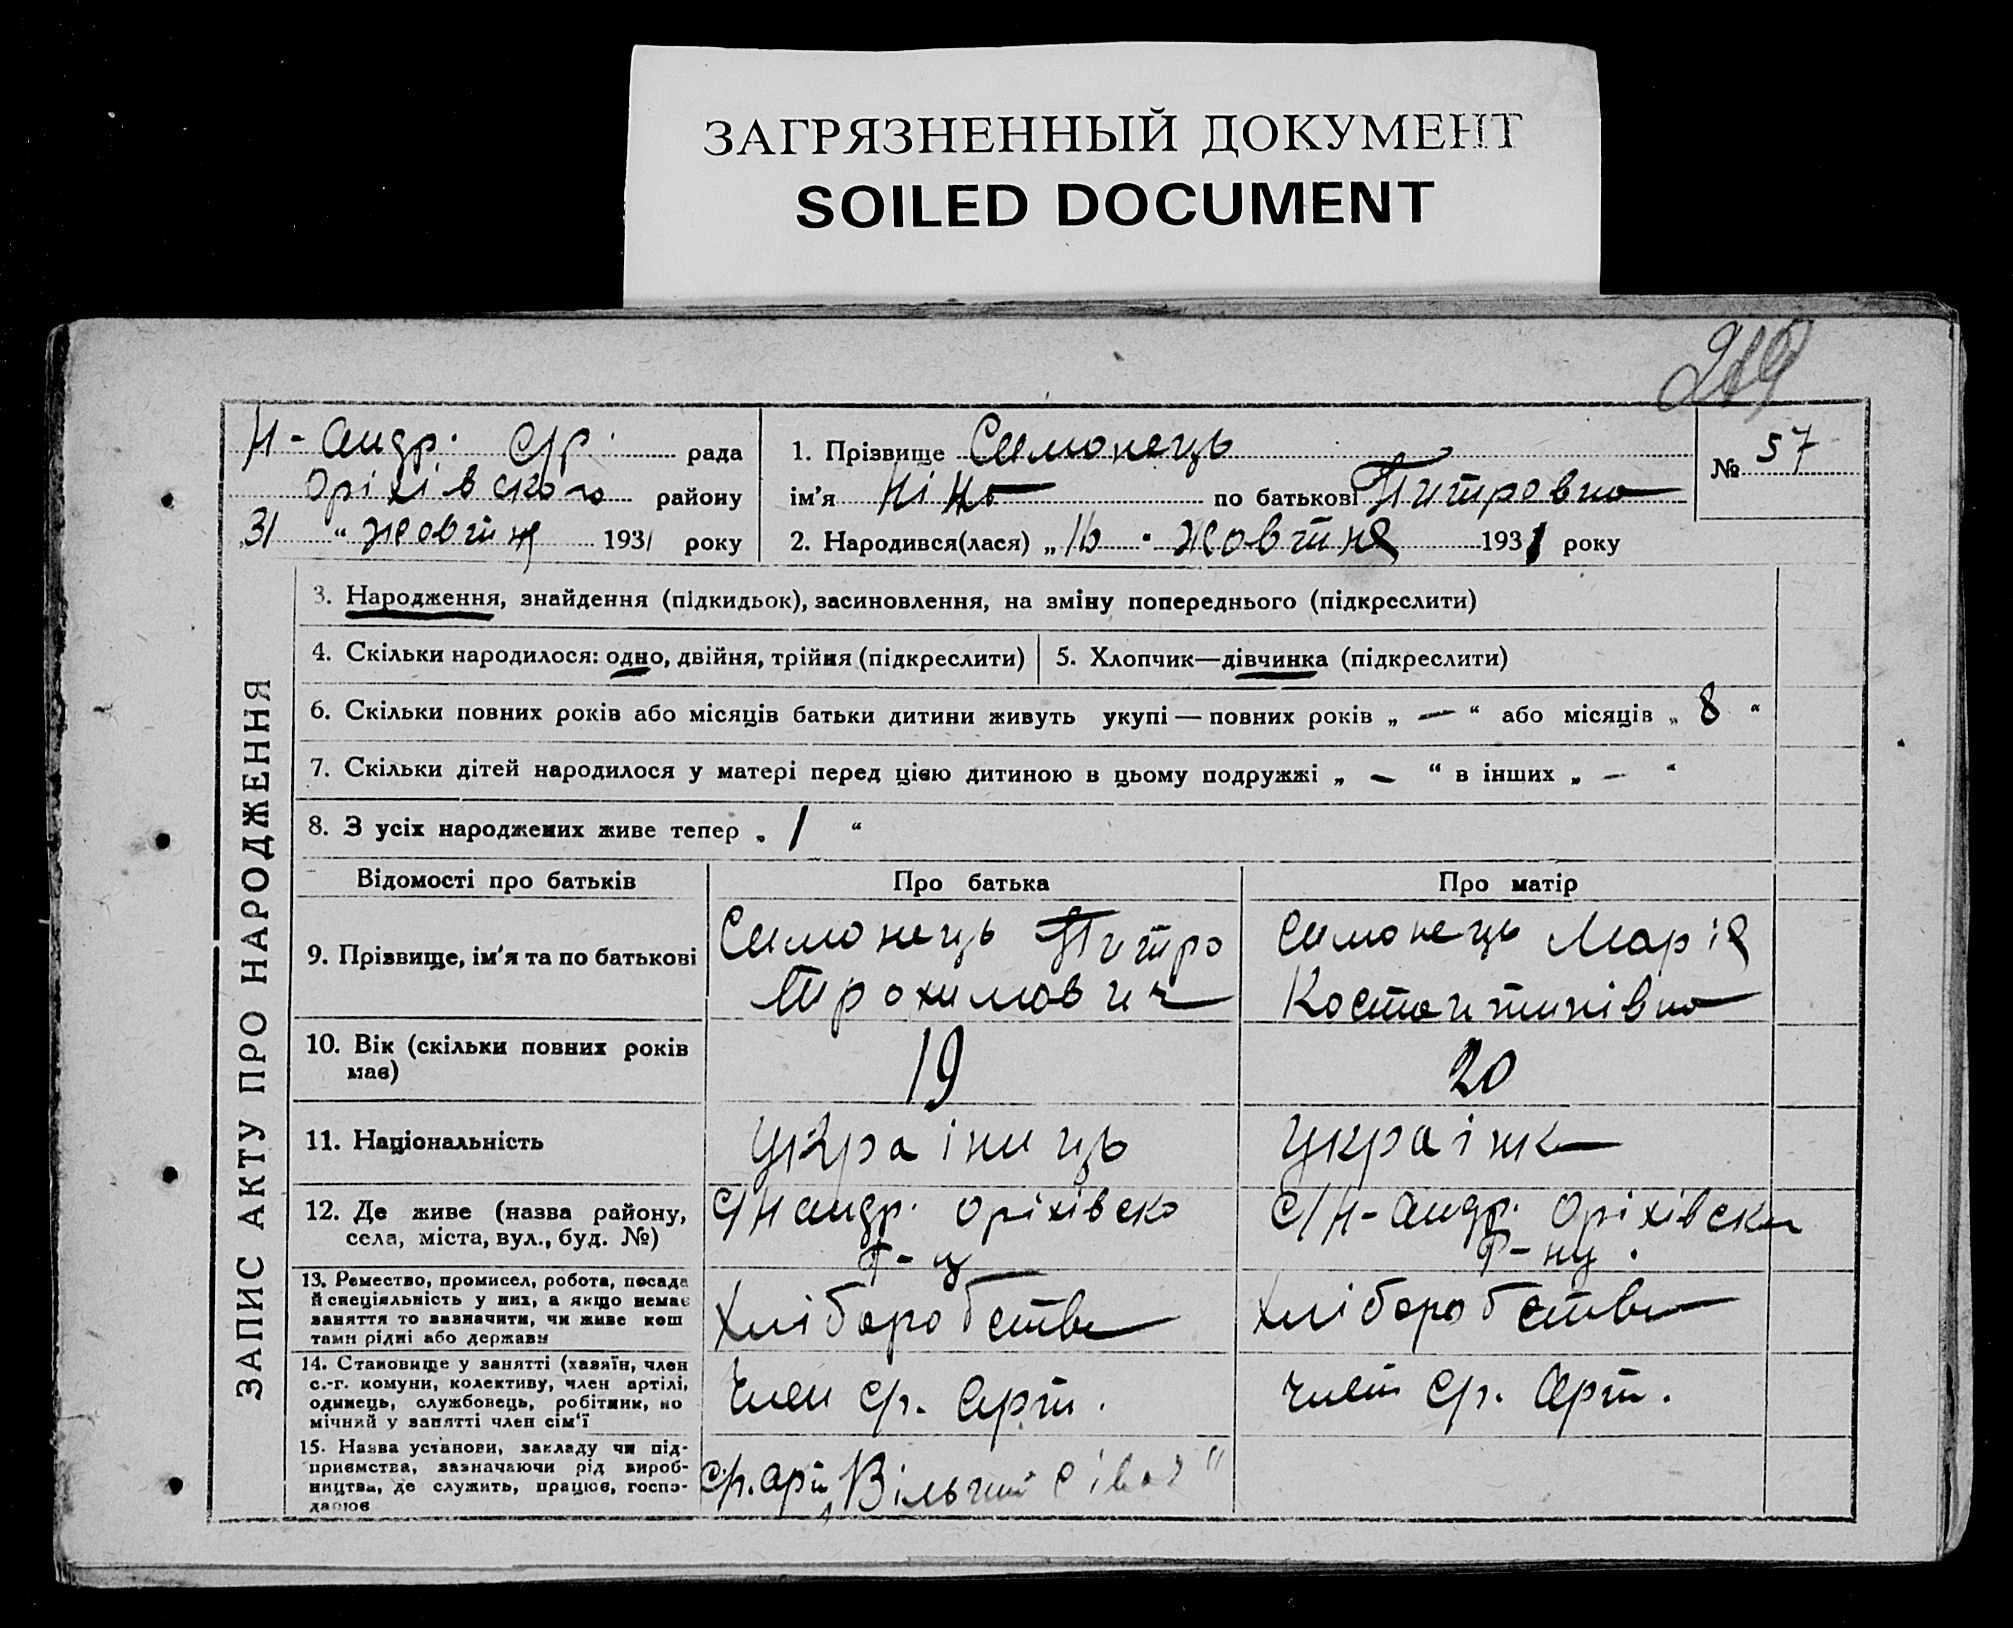 ЗАГРЯЗНЕННЫЙ ДОКУМЕНТ
SOILED DOCUMENT
219
Н-Андр. С/р. рада
Оріхівського району
31 " жовтня 1931 року
1. Прізвище Симонець
ім'я Ніна по батькові Питровна
2. Народився(лася) „16 " жовтня 1931 року
№ 57
ЗАПИС АКТУ ПРО НАРОДЖЕННЯ
3. Народження, знайдення (підкидьок), засиновлення, на зміну попереднього (підкреслити)
4. Скільки народилося: одно, двійня, трійня (підкреслити)
5. Хлопчик—дівчинка (підкреслити)
6. Скільки повних років або місяців батьки дитини живуть укупі — повних років „ — “ або місяців „ 8 “
7. Скільки дітей народилося у матері перед цією дитиною в цьому подружжі „ — “ в інших „ — “
8. З усіх народжених живе тепер „ 1 “
Відомості про батьків
Про батька
Про матір
9. Прізвище, ім'я та по батькові
Симонець Питро
Трохимович
Симонець Марія
Костантинівна
10. Вік (скільки повних років
має)
19
20
11. Національність
Українць
Українка
12. Де живе (назва району,
села, міста, вул., буд. №)
С/Н Андр. Оріхівско
Р-н
С/Н-Андр. Оріхівск
Р-ну.
13. Ремество, промисел, робота, посада
й спеціяльність у них, а якщо немає
заняття то зазначити, чи живе кош
тами рідні або держави
Хліборобства
Хліборобства
14. Становище у занятті (хазяїн, член
с.-г. комуни, колективу, член артілі,
одинець, службовець, робітник, по
мічний у занятті член сім'ї
Член с/г. Арт.
член с/г. Арт.
15. Назва установи, закладу чи під-
приємства, зазначаючи рід вироб-
ництва, де служить, працює, госпо-
дарює
С/г. арт „Вільний Сівач"